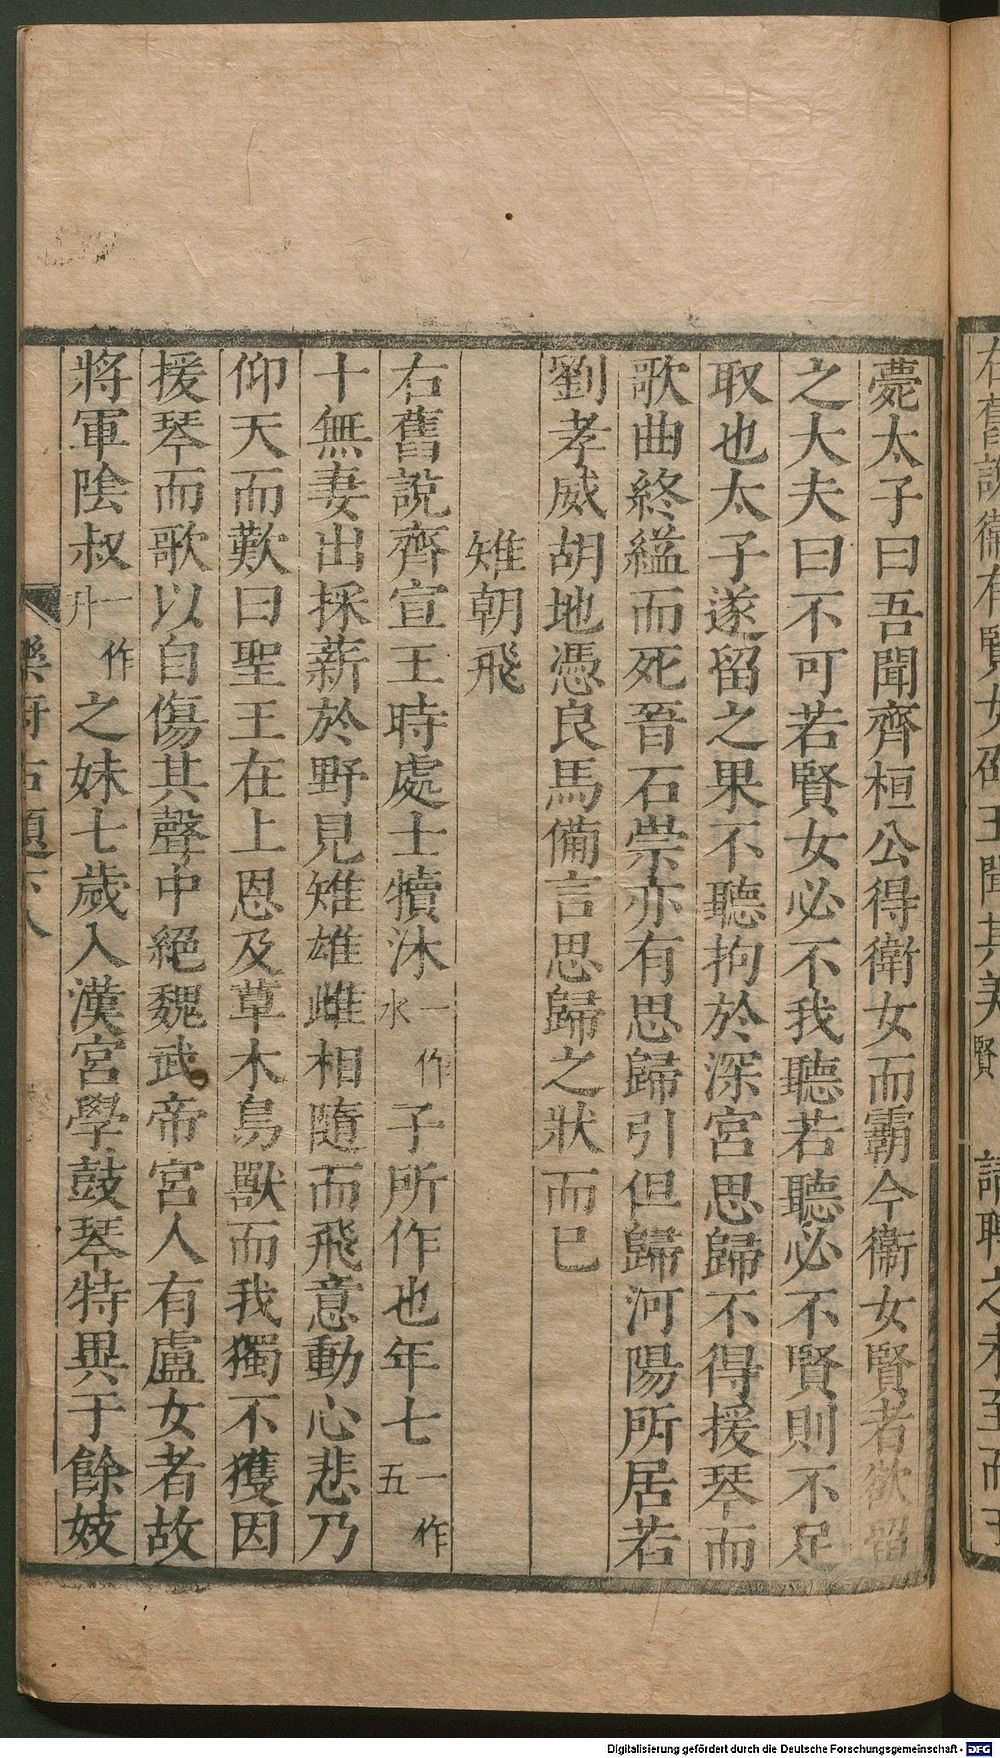 右舊說衛有賢女邵王聞其美賢請聘之未至而王
薨太子曰吾聞齊桓公得衛女而霸今衛女賢者欲留
之大夫曰不可若賢女必不我聽若聽必不賢則不足
取也太子遂留之果不聽拘於深宮思歸不得援琴而
歌曲終縊而死晉石崇亦有思歸引但歸河陽所居若
劉孝威胡地憑良馬備言思歸之狀而已
雉朝飛
右舊說齊宣王時處士犢沐一作水子所作也年七一作五
十無妻出採薪於野見雉雄雌相隨而飛意動心悲乃
仰天而歎曰聖王在上恩及草木鳥獸而我獨不獲因
援琴而歌以自傷其聲中絕魏武帝宮人有盧女者故
將軍陰叔一作升之妹七歲入漢宮學鼓琴特異于餘妓
樂府古題下 八
Digitalisierung gefördert durch die Deutsche Forschungsgemeinschaft - DFG